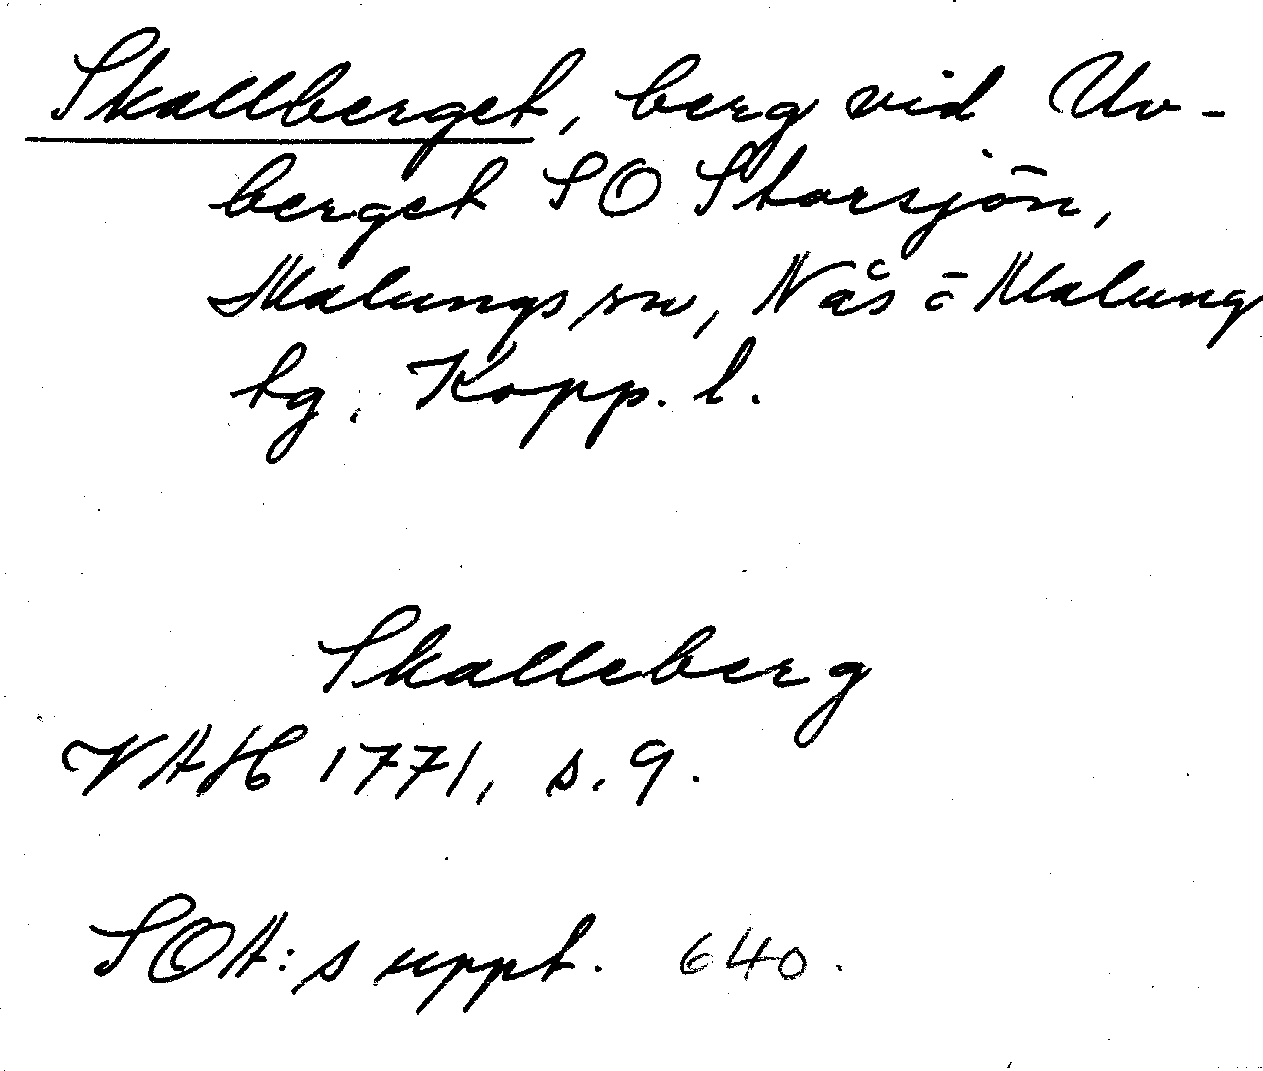 Skallberget, berg vid Uv-
berget SO Storsjön,
Malungs sn, Nås o Malung
tg. Kopp. l.
Skalleberg
VAH 1771, s. 9.
SOA:s uppt. 640.